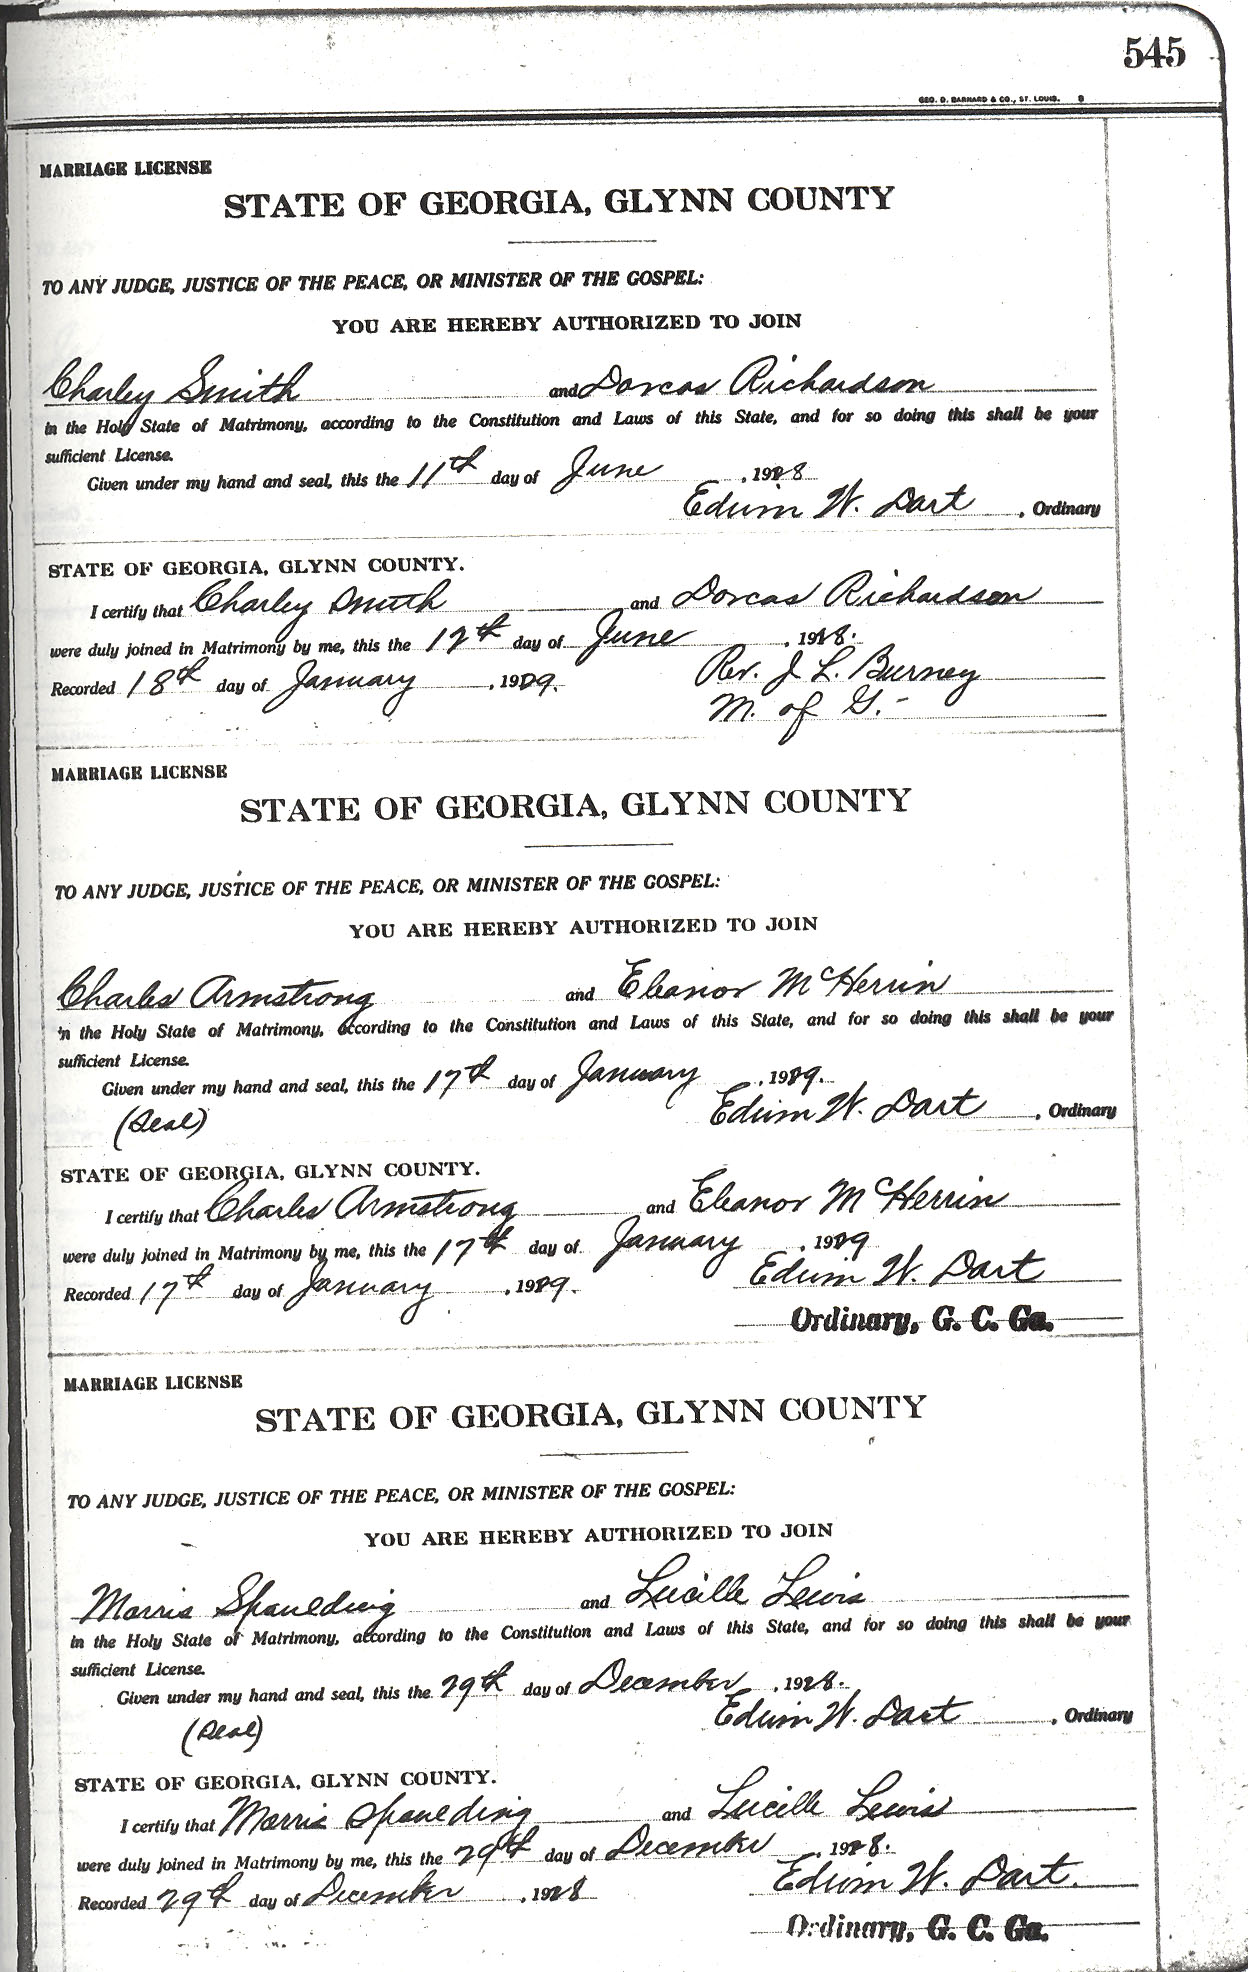 545
GEO. D. BARNARD & CO., ST. LOUIS. B
MARRIAGE LICENSE
STATE OF GEORGIA, GLYNN COUNTY
TO ANY JUDGE, JUSTICE OF THE PEACE, OR MINISTER OF THE GOSPEL:
YOU ARE HEREBY AUTHORIZED TO JOIN
Charley Smith and Dorcas Richardson
in the Holy State of Matrimony, according to the Constitution and Laws of this State, and for so doing this shall be your
sufficient License.
Given under my hand and seal, this the 11th day of June, 1928
Edwin W. Dart, Ordinary
STATE OF GEORGIA, GLYNN COUNTY.
I certify that Charley Smith and Dorcas Richardson
were duly joined in Matrimony by me, this the 12th day of June, 1928.
Rev. J L. Burney
Recorded 18th day of January, 1929.
M. of G.-
MARRIAGE LICENSE
STATE OF GEORGIA, GLYNN COUNTY
TO ANY JUDGE, JUSTICE OF THE PEACE, OR MINISTER OF THE GOSPEL:
YOU ARE HEREBY AUTHORIZED TO JOIN
Charles Armstrong and Eleanor McHerrin
in the Holy State of Matrimony, according to the Constitution and Laws of this State, and for so doing this shall be your
sufficient License.
Given under my hand and seal, this the 17th day of January, 1929.
(Seal) Edwin W. Dart, Ordinary
STATE OF GEORGIA, GLYNN COUNTY.
I certify that Charles Armstrong and Eleanor McHerrin
were duly joined in Matrimony by me, this the 17th day of January, 1929
Recorded 17th day of January, 1929. Edwin W. Dart
Ordinary, G. C. Ga.
MARRIAGE LICENSE
STATE OF GEORGIA, GLYNN COUNTY
TO ANY JUDGE, JUSTICE OF THE PEACE, OR MINISTER OF THE GOSPEL:
YOU ARE HEREBY AUTHORIZED TO JOIN
Morris Spaulding and Lucille Lewis
in the Holy State of Matrimony, according to the Constitution and Laws of this State, and for so doing this shall be your
sufficient License.
Given under my hand and seal, this the 29th day of December, 1928.
(Seal) Edwin W. Dart, Ordinary
STATE OF GEORGIA, GLYNN COUNTY.
I certify that Morris Spaulding and Lucille Lewis
were duly joined in Matrimony by me, this the 29th day of December, 1928.
Recorded 29th day of December, 1928 Edwin W. Dart.
Ordinary, G. C. Ga.